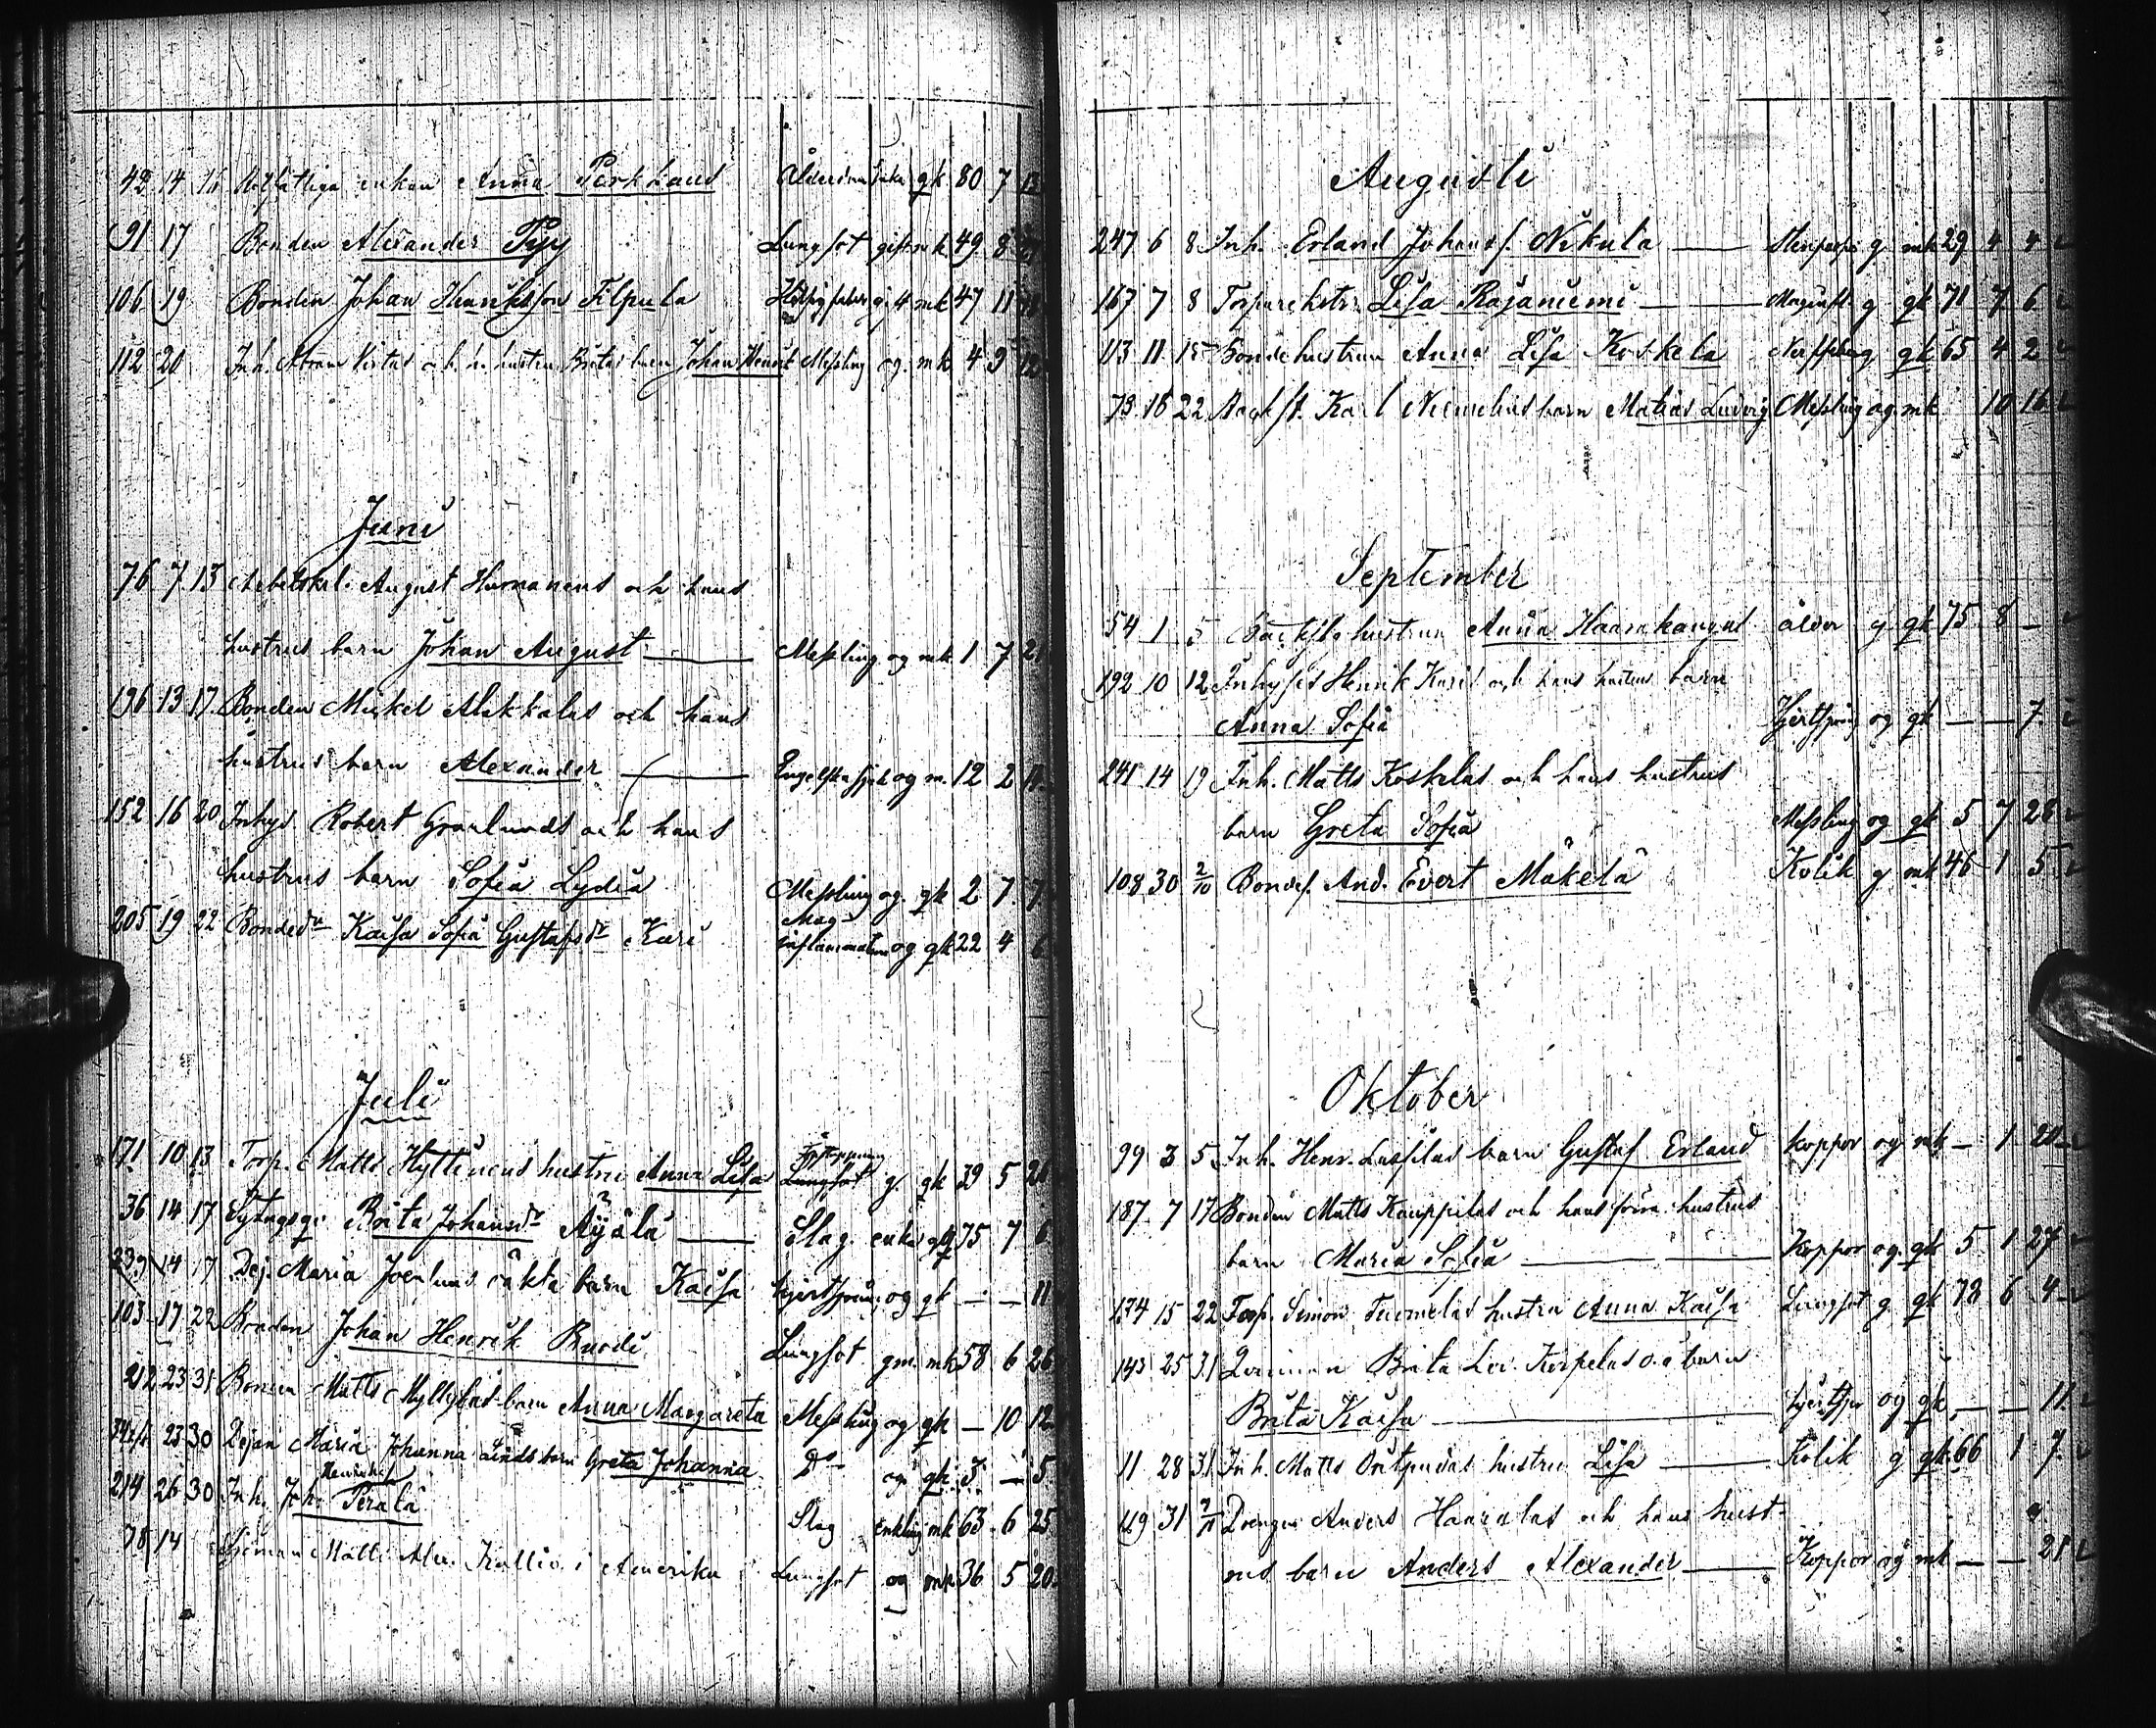 42 14 16 enkan Anna Perkkaus gk 80 7 13
91 17 Bonden Alexander Typy Lungsot gift mk 49 8
106 19 Bonden Johan Henriksson Filpula g. mk 47 11
112 20 Inh. Abram och h. hustru Britas barn Johan Henrik Messling og. mk 4 9 12
Juni
76 7 13 Arbetskarl. August och hans
hustrus barn Johan August Messling og mk 1 7 21
196 13 17 Bonden Mickel Alakkalas och hans
hustrus barn Alexander Engelska sjuk og m. 12 2 14
152 16 20 Inhys. Robert Grönlunds och hans
hustrus barn Sofia Lydia Messling og. gk 2 7 7
205 19 22 Bondedr Kaisa Sofia Gustafsdr Kari Mag
inflammation og gk 22 4 6
Juli
171 10 13 Torp. Matts Hyttinens hustru Anna Lisa Lungsot g. gk 39 5 21
36 14 17 Sytngsq. Brita Johansdr Äijälä Slag enka gk 75 7 6
239 14 17 Dej. Maria oäkta barn Kaisa hjertspång og gk – – 11
103 17 22 Bonden Johan Henrik Ruodi Lungsot gm. mk 58 6 26
212 23 31 Bonden Matts Myllykas barn Anna Margareta Messling og gk – 10 12
23 30 Dejan Maria Johanna barn Greta Johanna Do og gk 3 – 5
Henriks
214 26 30 Inh. Joh. Perala Slag enkling mk 63 6 25
78 14 Sjöman Matts Alex. Kallio i Amerika Lungsot og mk 36 5 20
Augusti
247 6 8 Inh. Erland Johanss. Nikula g mk 29 4 4
167 7 8 Torparehstr. Lisa Rajaniemi Maginfl. g gk 71 7 6
113 11 15 Bondehustrun Anna Lisa Koskela g gk 65 4 2
73 18 22 Karl Niemelas barn Matias Ludvig Messling og. mk 10 16
September
54 1 5 hustrun Anna Haarakangas ålder g. gk 75 8 –
192 10 12 Inhyses Henrik Karis och hans hustrus barn
Anna Sofia Hjertspång og gk – – 7
241 14 19 Inh. Matts Koskelas och hans hustrus
barn Greta Sofia Messling og gk 5 7 28
108 30 2/10 Bondes. And. Evert Mäkelä Kolik g mk 46 1 5
Oktober
99 3 5 Inh. Henr. Lassilas barn Gustaf Erland koppor og mk – 1 20
187 7 17 Bonden Matts Kauppilas och hans förra hustrus
barn Maria Sofia Koppor og. gk 5 1 27
174 15 22 Torp. Simon Tuomelas hustru Anna Kaisa Lungsot g. gk 72 6 4
143 25 31 Brita Lov. Korpelas o.ä barn
Brita Kaisa hjertspr og gk – – 11
11 28 31 Inh. Matts hustru Lisa Kolik g gk 66 1 7
119 31 7/11 Drengen Anders Haaralas och hans hust-
rus barn Anders Alexander Koppor og mk – – 21